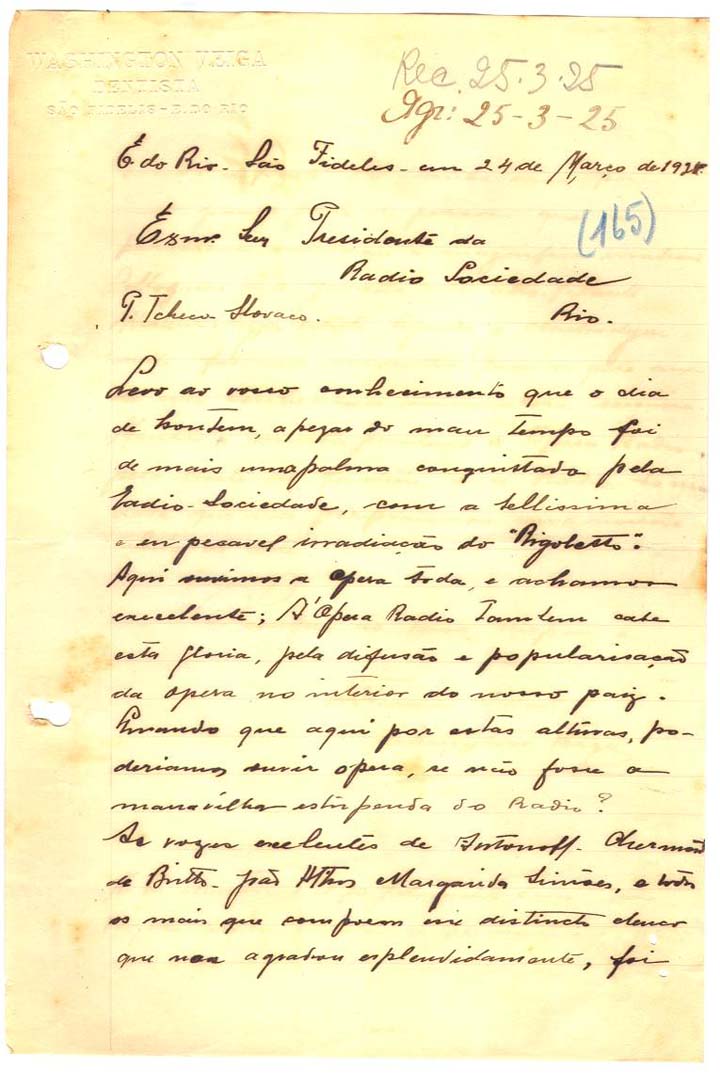 WASHINGTON VEIGA
DENTISTA
SÃO FIDELIS - E. DO RIO
Rec. 25.3.25
Agr: 25-3-25
E. do Rio - São Fideles - em 24 de Março de 192
(165)
Exmo. Snr Presidente da
Radio Sociedade
P. Tcheco Slovaco. Rio.
Levo ao vosso conhecimento que o dia
de hontem, apezar do mau tempo foi
de mais uma palma conquistada pela
Radio-Sociedade, com a bellissima
e en pecavel irradiação do "Rigoletto".
Aqui ouvimos a opera toda, e achamos
excelente; Á Opera Radio tambem cabe
esta gloria, pela difusão e popularisação
da opera no interior do nosso paiz.
Quando que aqui por estas alturas, po-
deriamos ouvir opera, se não fosse a
maravilha estupenda do Radio?
As vozes excelentes de
de Britto - João Athos Margarida Simões, e todos
os mais que compoem esse distincto elenco
que nos agradou esplendidamente, foi